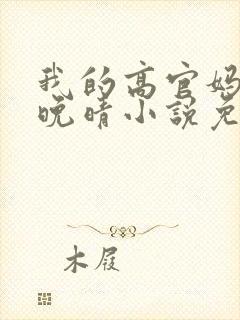 我的高官妈
晚晴小说免
木屐